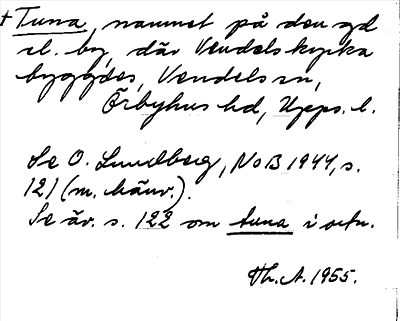 † Tuna, namnet på den gd
el. by, där Vendels kyrka
byggdes, Vendels sn,
Örbyhus hd, Upps. l.
Se O. Lundberg, NoB 1944, s.
121 (m. hänv.).
Se äv. s. 122 om tuna i ortn.
Th. A. 1955.